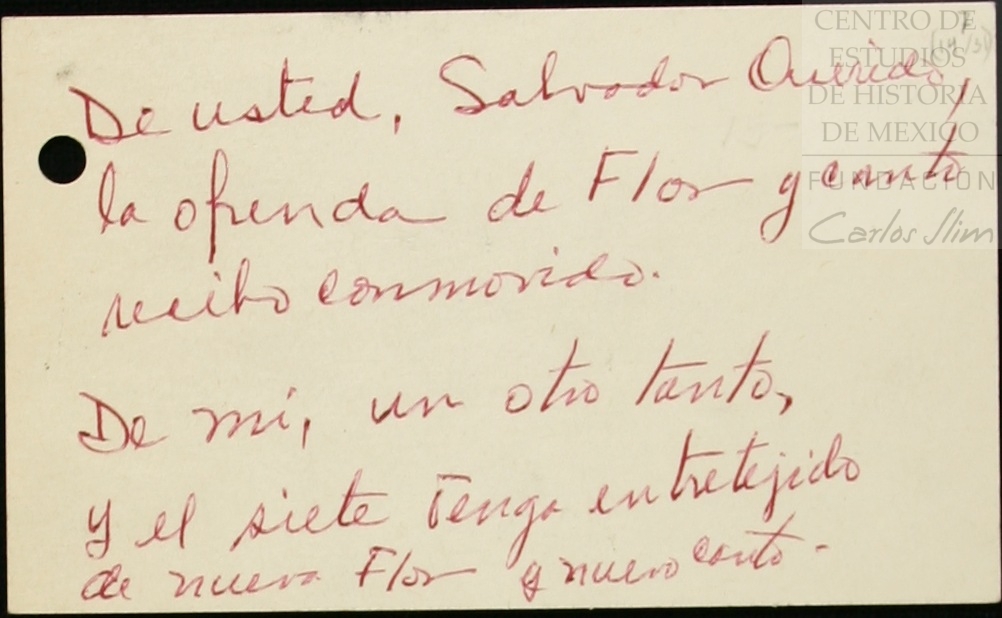 CENTRO DE
ESTUDIOS
DE HISTORIA
DE MEXICO
FUNDACIÓN
Carlos Slim
De usted, Salvador Querido,
la ofrenda de Flor y canto
recibo conmovido.
De mí, un otro tanto,
y el siete tenga entretejido
de nueva Flor y nuevo canto.